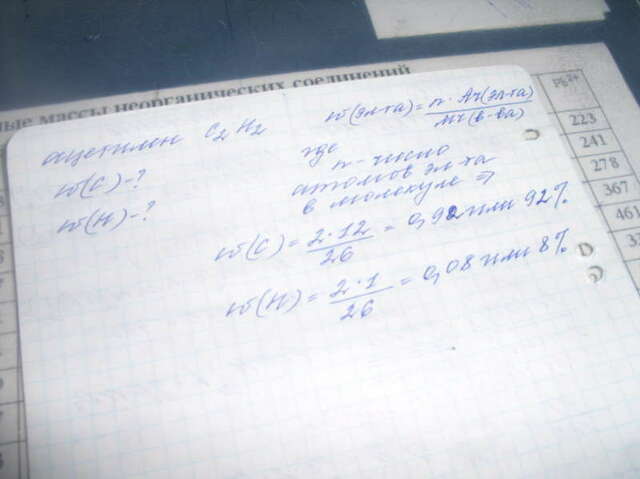 ные массы неорганических соединений
Pb²⁺
223
241
278
367
461
ацетилен C₂H₂
w(C)-?
w(H)-?
w(эл-та) = n · Ar(эл-та) / Mr(в-ва)
где
n-число
атомов эл-та
в молекуле ⇒
w(C) = 2·12 / 26 = 0,92 или 92%
w(H) = 2·1 / 26 = 0,08 или 8%